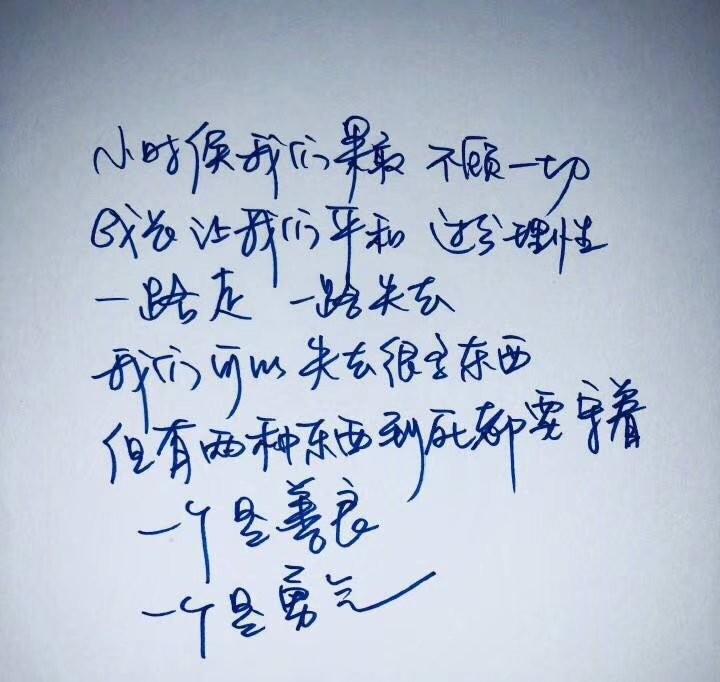 小时候我们果敢 不顾一切
成长让我们平和 过分理性
一路走 一路失去
我们可以失去很多东西
但有两种东西到死都要守着
一个是善良
一个是勇气